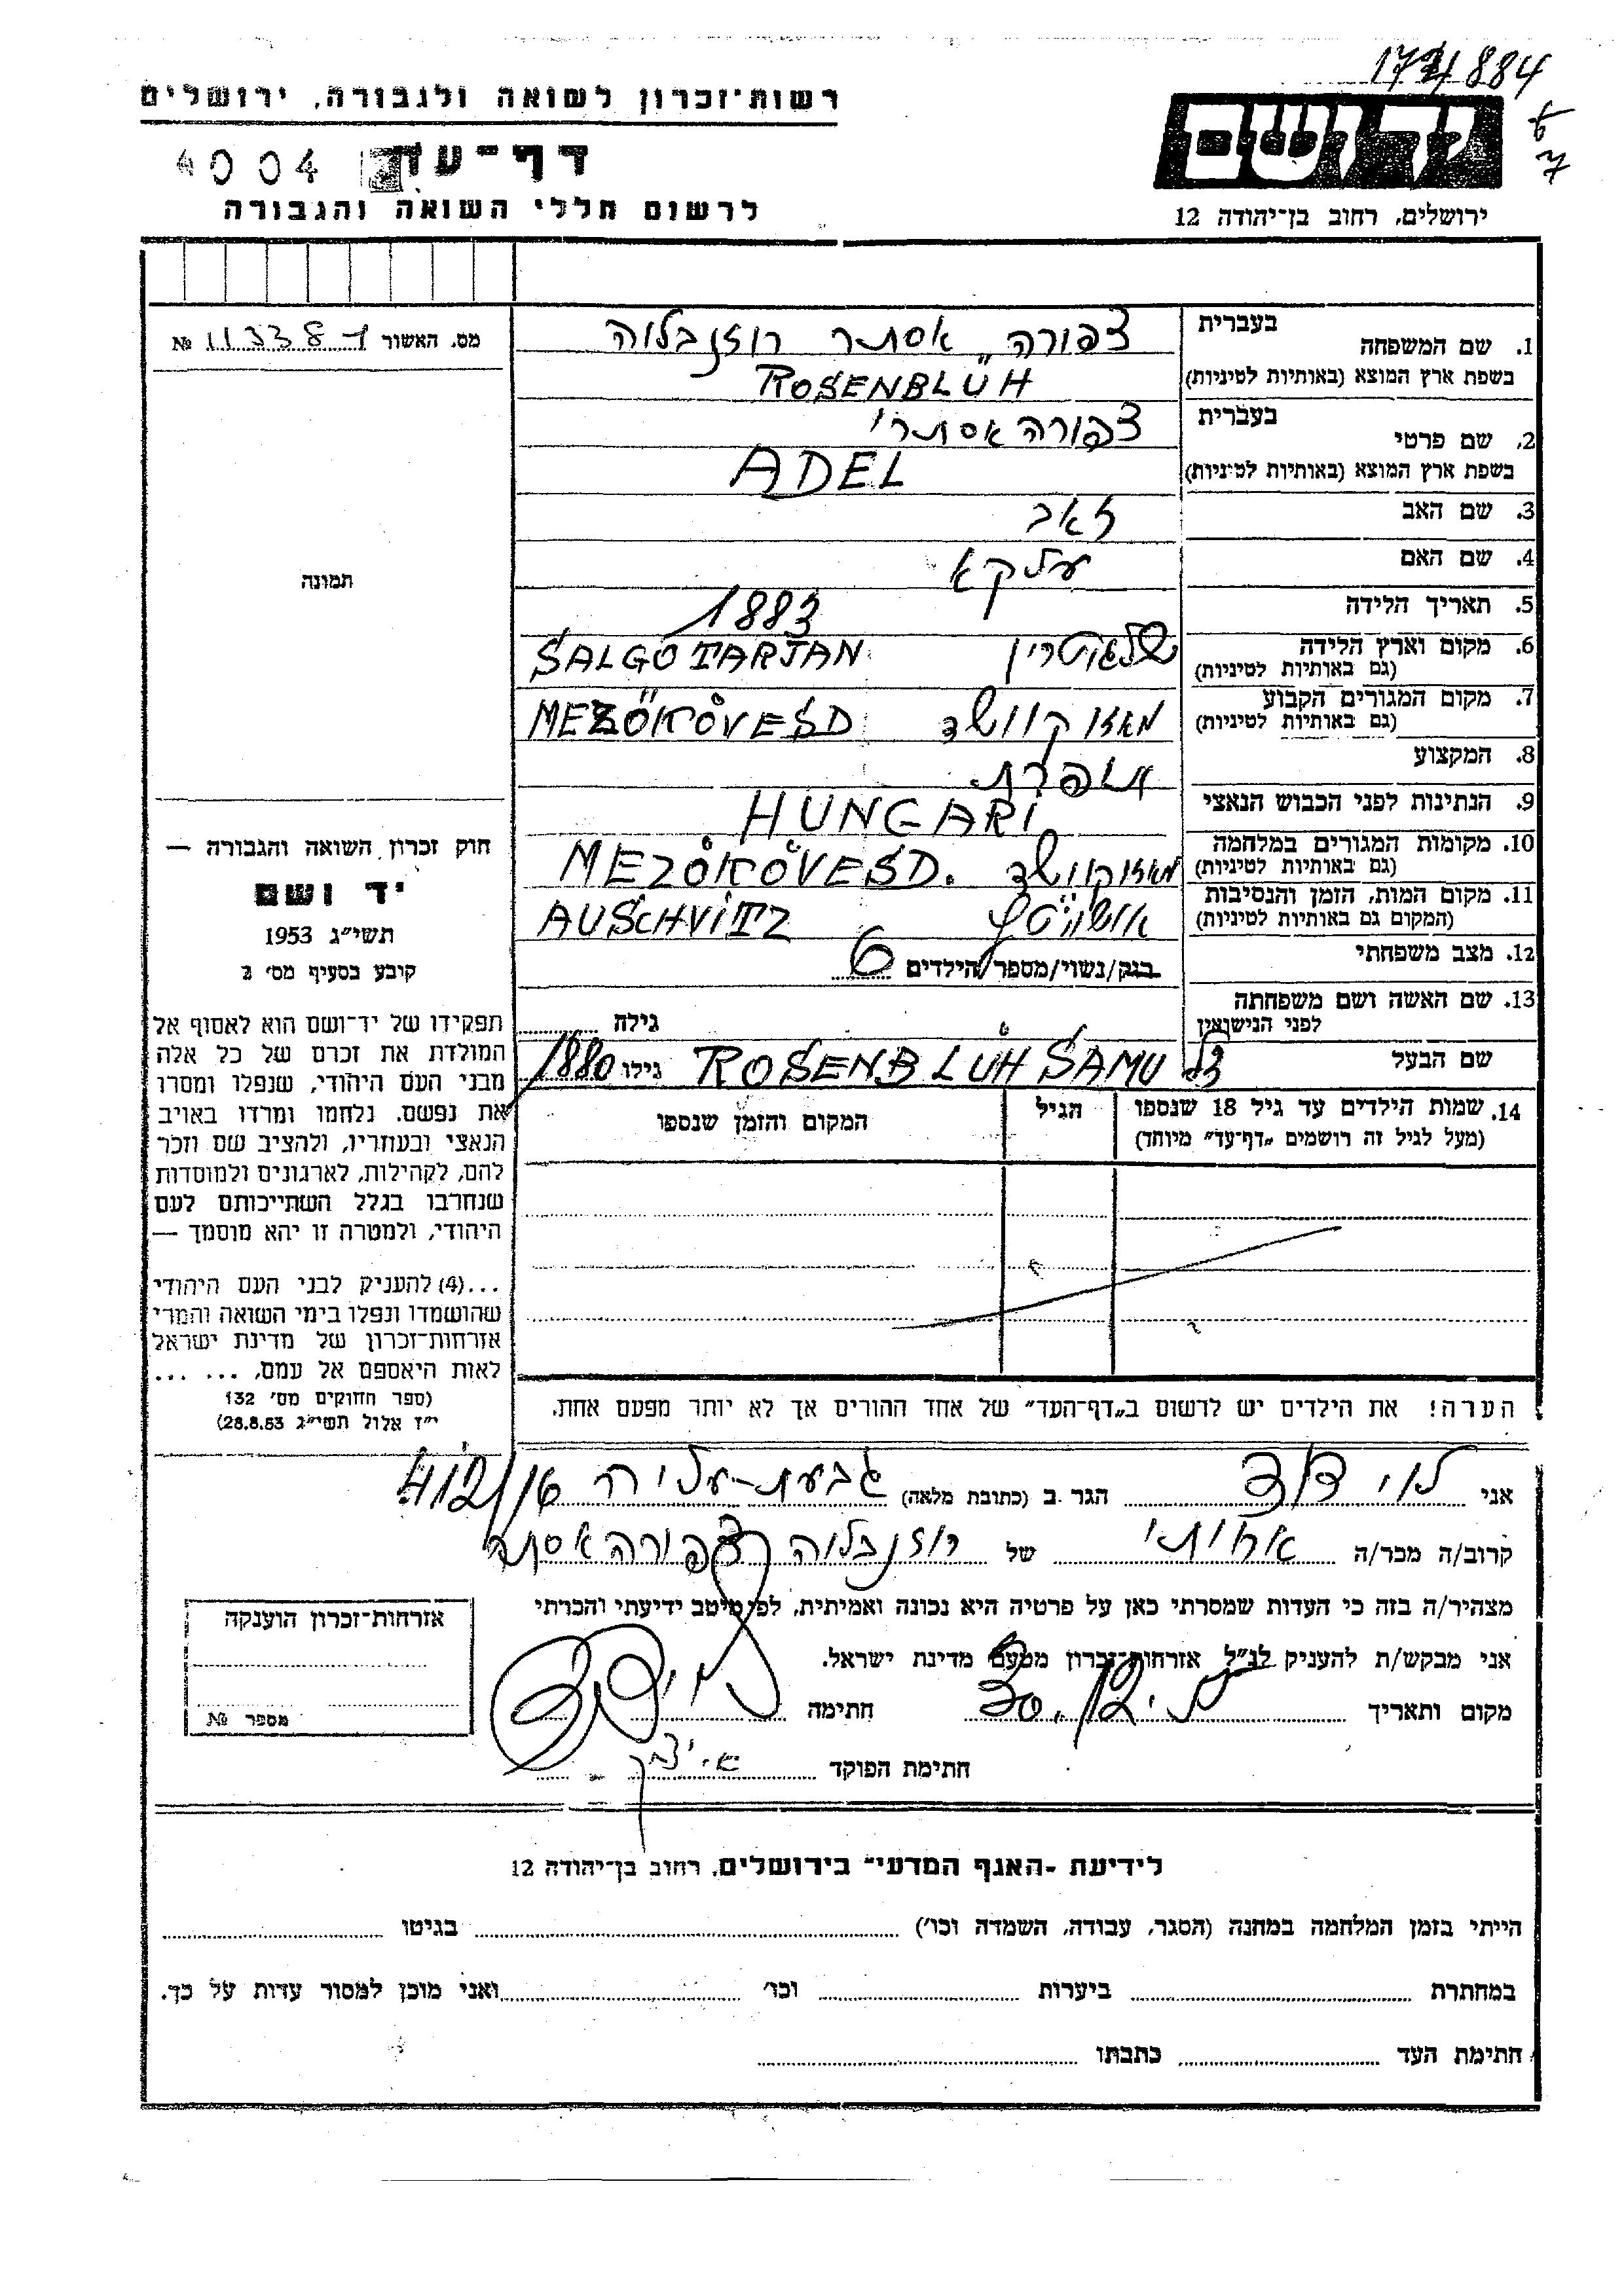 174884
רשות־זכרון לשואה ולגבורה, ירושלים
4004
דף־עד
לרשום חללי השואה והגבורה
יד ושם
ירושלים, רחוב בן־יהודה 12
מס. האשור № 113387
1. שם המשפחה
בעברית
צפורה אסתר רוזנבלוה
בשפת ארץ המוצא (באותיות לטיניות)
ROSENBLÜH
2. שם פרטי
בעברית
צפורה אסתר
בשפת ארץ המוצא (באותיות לטיניות)
ADEL
3. שם האב
זאב
4. שם האם
5. תאריך הלידה
1883
6. מקום וארץ הלידה
(גם באותיות לטיניות)
שלגוטרין SALGOTARJAN
7. מקום המגורים הקבוע
(גם באותיות לטיניות)
מאזוקוושד MEZÖKÖVESD
8. המקצוע
תופרת
9. הנתינות לפני הכבוש הנאצי
HUNGARI
10. מקומות המגורים במלחמה
(גם באותיות לטיניות)
מאזוקוושד MEZÖKÖVESD.
11. מקום המות, הזמן והנסיבות
(המקום גם באותיות לטיניות)
אושוויטץ AUSCHVITZ
12. מצב משפחתי
רווק/נשוי/מספר הילדים 6
13. שם האשה ושם משפחתה
לפני הנישואין
גילה
שם הבעל
ROSENBLÜH SAMU גילו 1880
14. שמות הילדים עד גיל 18 שנספו
(מעל לגיל זה רושמים „דף־עד" מיוחד)
הגיל
המקום והזמן שנספו
הערה! את הילדים יש לרשום ב„דף־העד" של אחד ההורים אך לא יותר מפעם אחת.
תמונה
חוק זכרון השואה והגבורה —
יד ושם
תשי"ג 1953
קובע בסעיף מס' 2
תפקידו של יד־ושם הוא לאסוף אל
המולדת את זכרם של כל אלה
מבני העם היהודי, שנפלו ומסרו
את נפשם, נלחמו ומרדו באויב
הנאצי ובעוזריו, ולהציב שם וזכר
להם, לקהילות, לארגונים ולמוסדות
שנחרבו בגלל השתייכותם לעם
היהודי, ולמטרה זו יהא מוסמך —
...(4) להעניק לבני העם היהודי
שהושמדו ונפלו בימי השואה והמרי
אזרחות־זכרון של מדינת ישראל
לאות היאספם אל עמם. ... ...
(ספר החוקים מס' 132
י"ז אלול תשי"ג 28.8.53)
אני לוי דוד הגר ב (כתובת מלאה) גבעת-עליה 412/
קרוב/ה מכר/ה אחותי של רוזנבלוה צפורה אסתר
מצהיר/ה בזה כי העדות שמסרתי כאן על פרטיה היא נכונה ואמיתית, לפי מיטב ידיעתי והכרתי
אני מבקש/ת להעניק לנ"ל אזרחות־זכרון מטעם מדינת ישראל.
מקום ותאריך חתימה לוי דוד
חתימת הפוקד
אזרחות־זכרון הוענקה
מספר №
לידיעת -האגף המדעי" בירושלים, רחוב בן־יהודה 12
הייתי בזמן המלחמה במחנה (הסגר, עבודה, השמדה וכו') בגיטו
במחתרת ביערות וכו' ואני מוכן למסור עדות על כך.
חתימת העד כתבתו